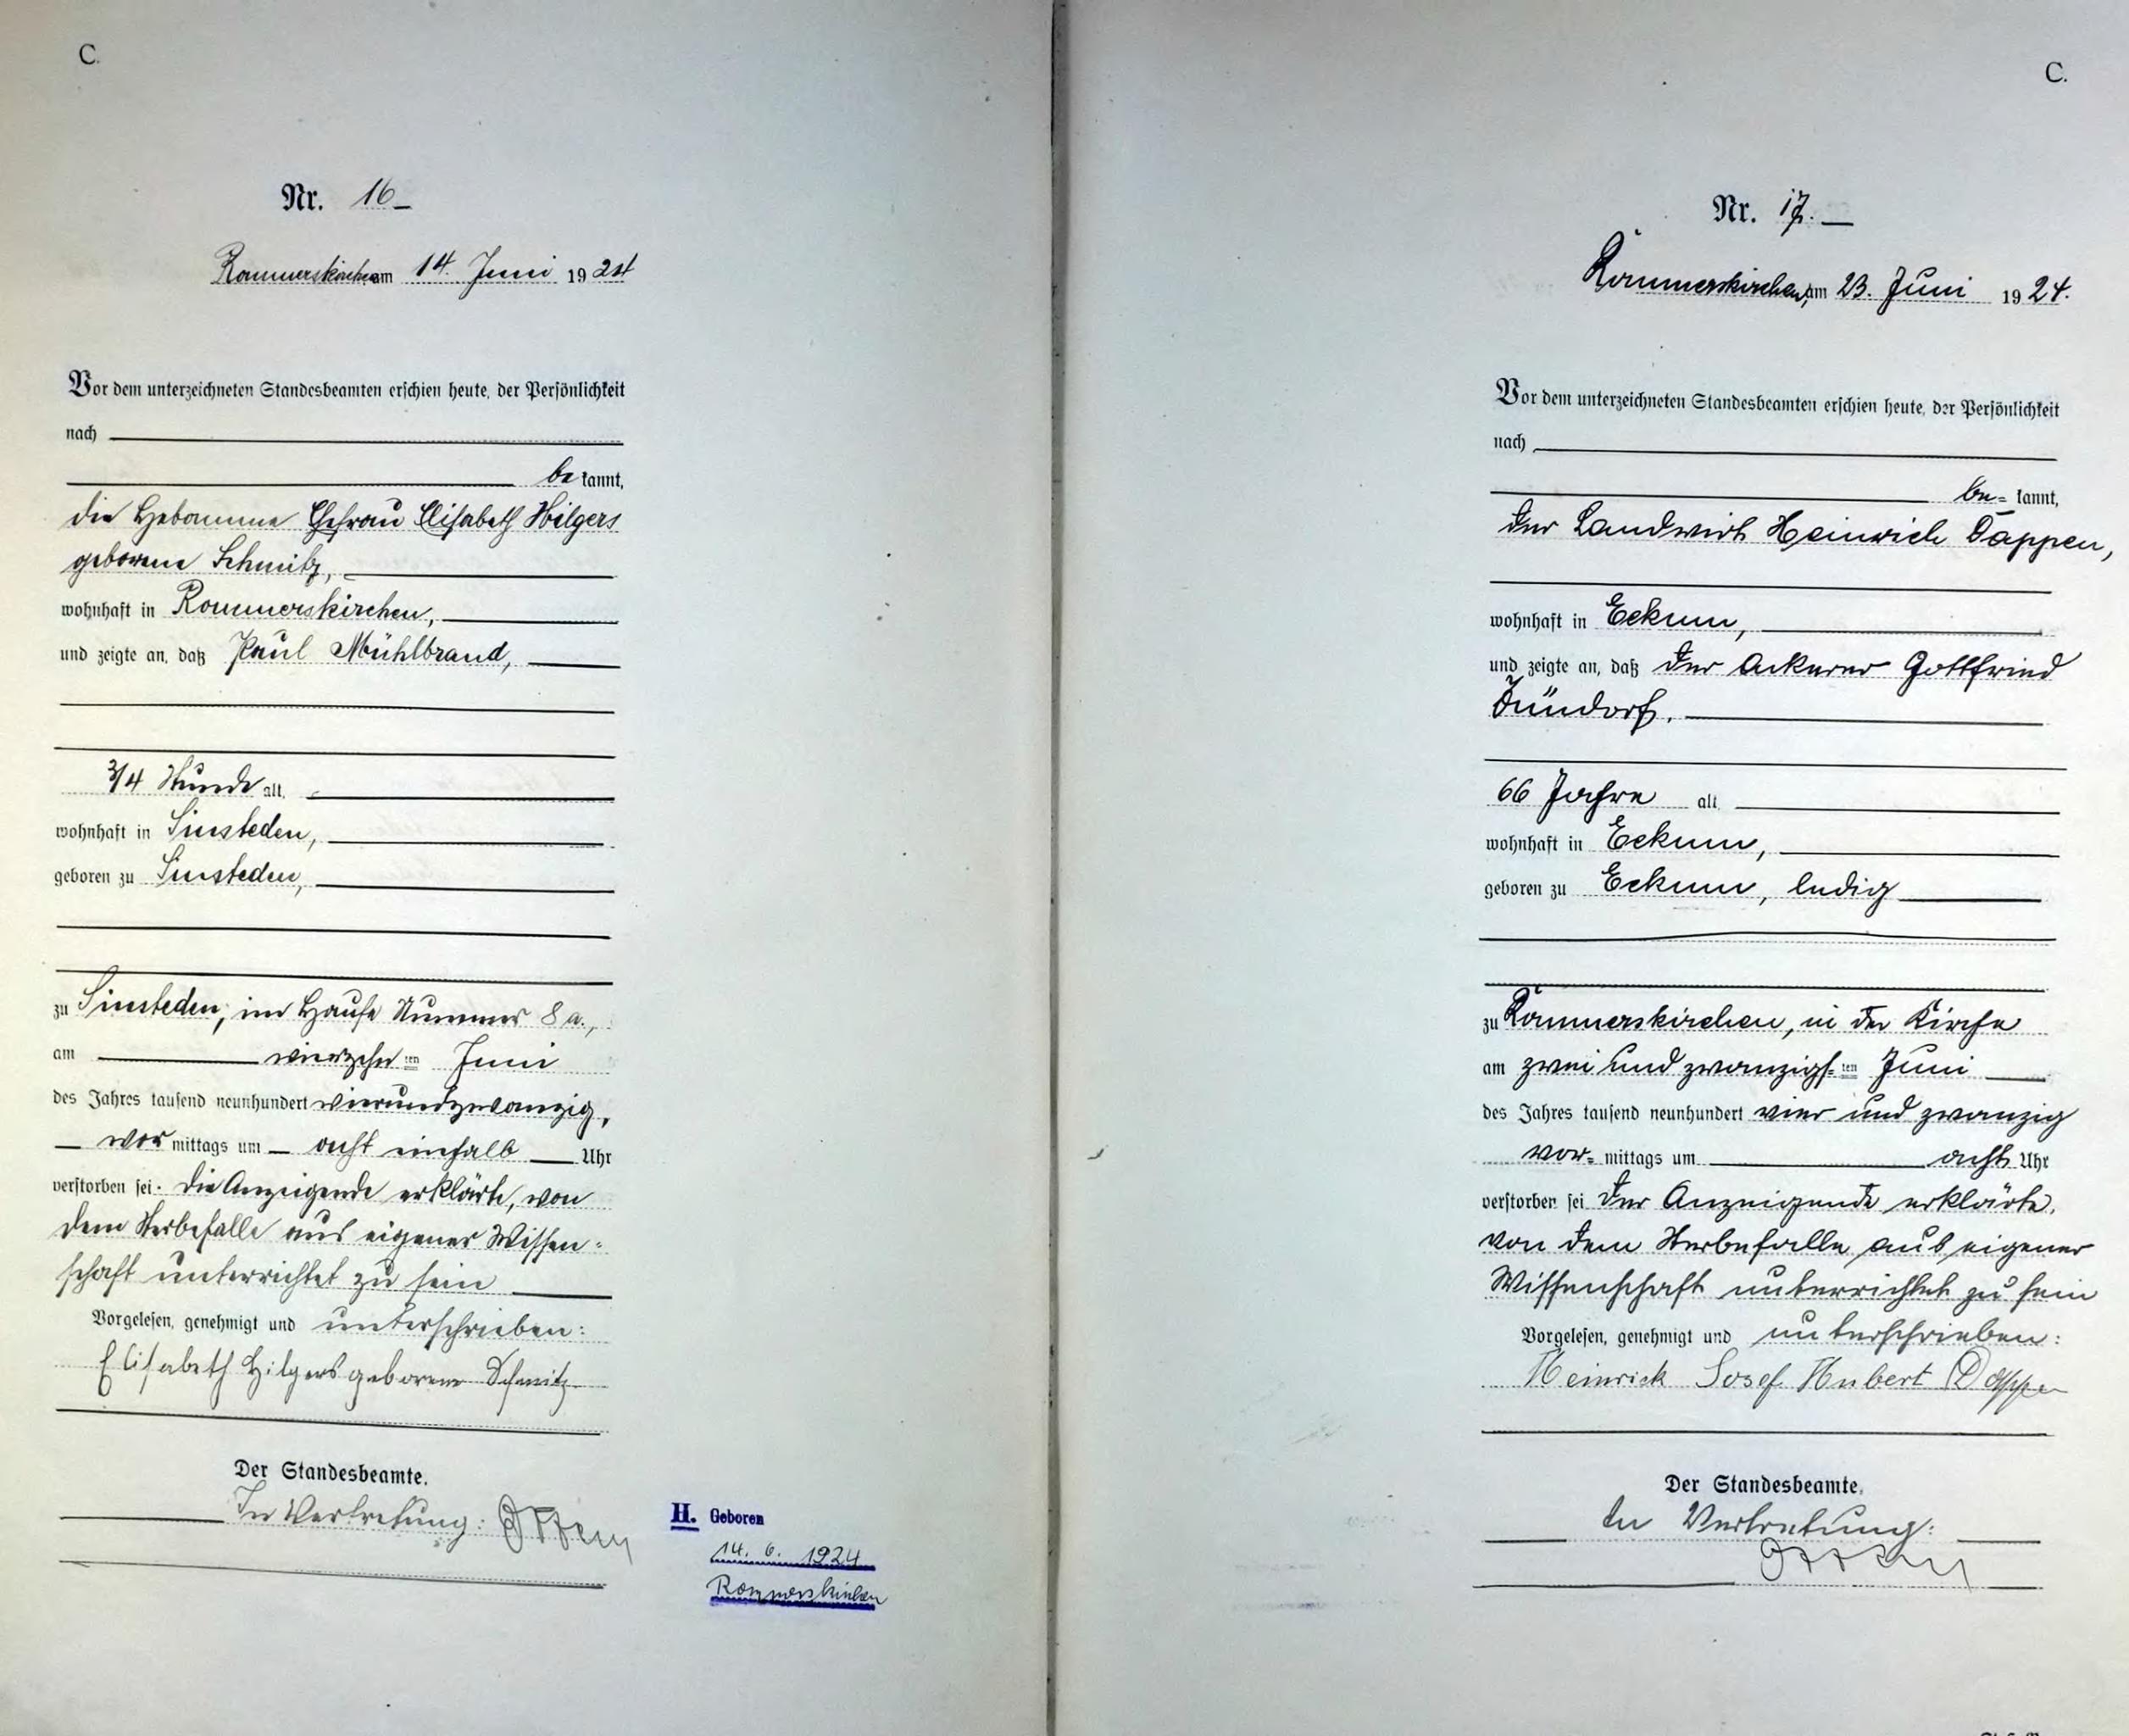 C.
Nr. 16
Rommerskirchen am 14. Juni 1924
Vor dem unterzeichneten Standesbeamten erschien heute, der Persönlichkeit
nach
be kannt,
die Hebamme Ehefrau Elisabeth Hilgers
geborene Schmitz,
wohnhaft in Rommerskirchen,
und zeigte an, daß Paul Mühlbrand,
3/4 Stunde alt,
wohnhaft in Sinsteden,
geboren zu Sinsteden,
zu Sinsteden, im Hause Nummer 8 a.,
am vierzehn ten Juni
des Jahres tausend neunhundert vierundzwanzig,
vor mittags um acht einhalb Uhr
verstorben sei. Die Anzeigende erklärte, von
dem Sterbefalle aus eigener Wissen-
schaft unterrichtet zu sein
Vorgelesen, genehmigt und unterschrieben:
Elisabeth Hilgers geborene Schmitz
Der Standesbeamte.
In Vertretung:
H. Geboren
14. 6. 1924
Rommerskirchen
C.
Nr. 17.
Rommerskirchen, am 23. Juni 1924.
Vor dem unterzeichneten Standesbeamten erschien heute, der Persönlichkeit
nach
be= kannt,
der Landwirt Heinrich Dappen,
wohnhaft in Eckum,
und zeigte an, daß der Ackerer Gottfried
Zündorf,
66 Jahre alt,
wohnhaft in Eckum,
geboren zu Eckum, ledig
zu Rommerskirchen, in der Kirche
am zwei und zwanzigs= ten Juni
des Jahres tausend neunhundert vier und zwanzig
vor= mittags um acht Uhr
verstorben sei. Der Anzeigende erklärte,
von dem Sterbefalle aus eigener
Wissenschaft unterrichtet zu sein
Vorgelesen, genehmigt und unterschrieben:
Heinrich Josef Hubert Dappen
Der Standesbeamte.
In Vertretung: